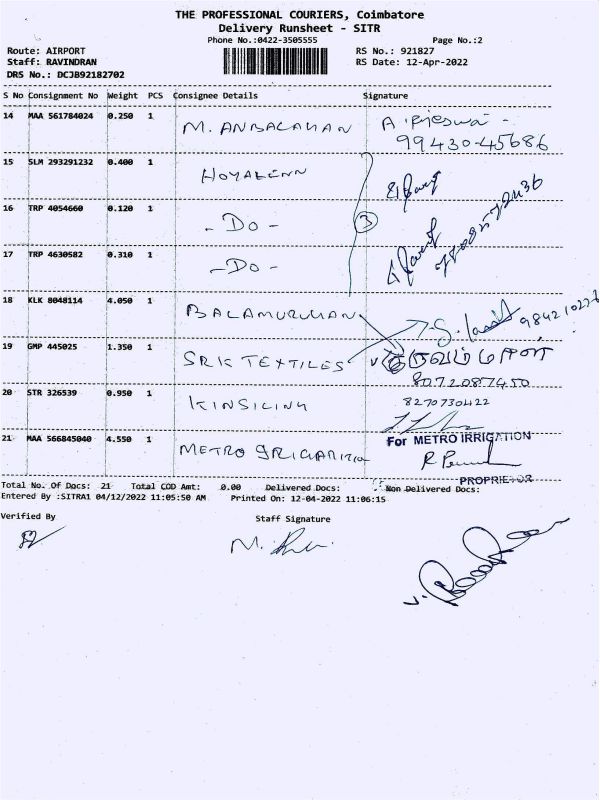 THE PROFESSIONAL COURIERS, Coimbatore
Delivery Runsheet - SITR
Phone No.:0422-3505555 Page No.:2
Route: AIRPORT RS No.: 921827
Staff: RAVINDRAN RS Date: 12-Apr-2022
DRS No.: DCJB92182702
S No Consignment No Weight PCS Consignee Details Signature
14 MAA 561784024 0.250 1 M. ANBALAHAN
99430-45686
15 SLM 293291232 0.400 1
16 TRP 4054660 0.120 1 - Do - 3
17 TRP 4630582 0.310 1 - Do -
18 KLK 8048114 4.050 1 BALAMURUHAN
19 GMP 445025 1.350 1 SRK TEXTILES
8072087450
20 STR 326539 0.950 1 8270730422
21 MAA 566845040 4.550 1 METRO For METRO IRRIGATION
PROPRIETOR
Total No. Of Docs: 21 Total COD Amt: 0.00 Delivered Docs: Non Delivered Docs:
Entered By :SITRA1 04/12/2022 11:05:50 AM Printed On: 12-04-2022 11:06:15
Verified By Staff Signature